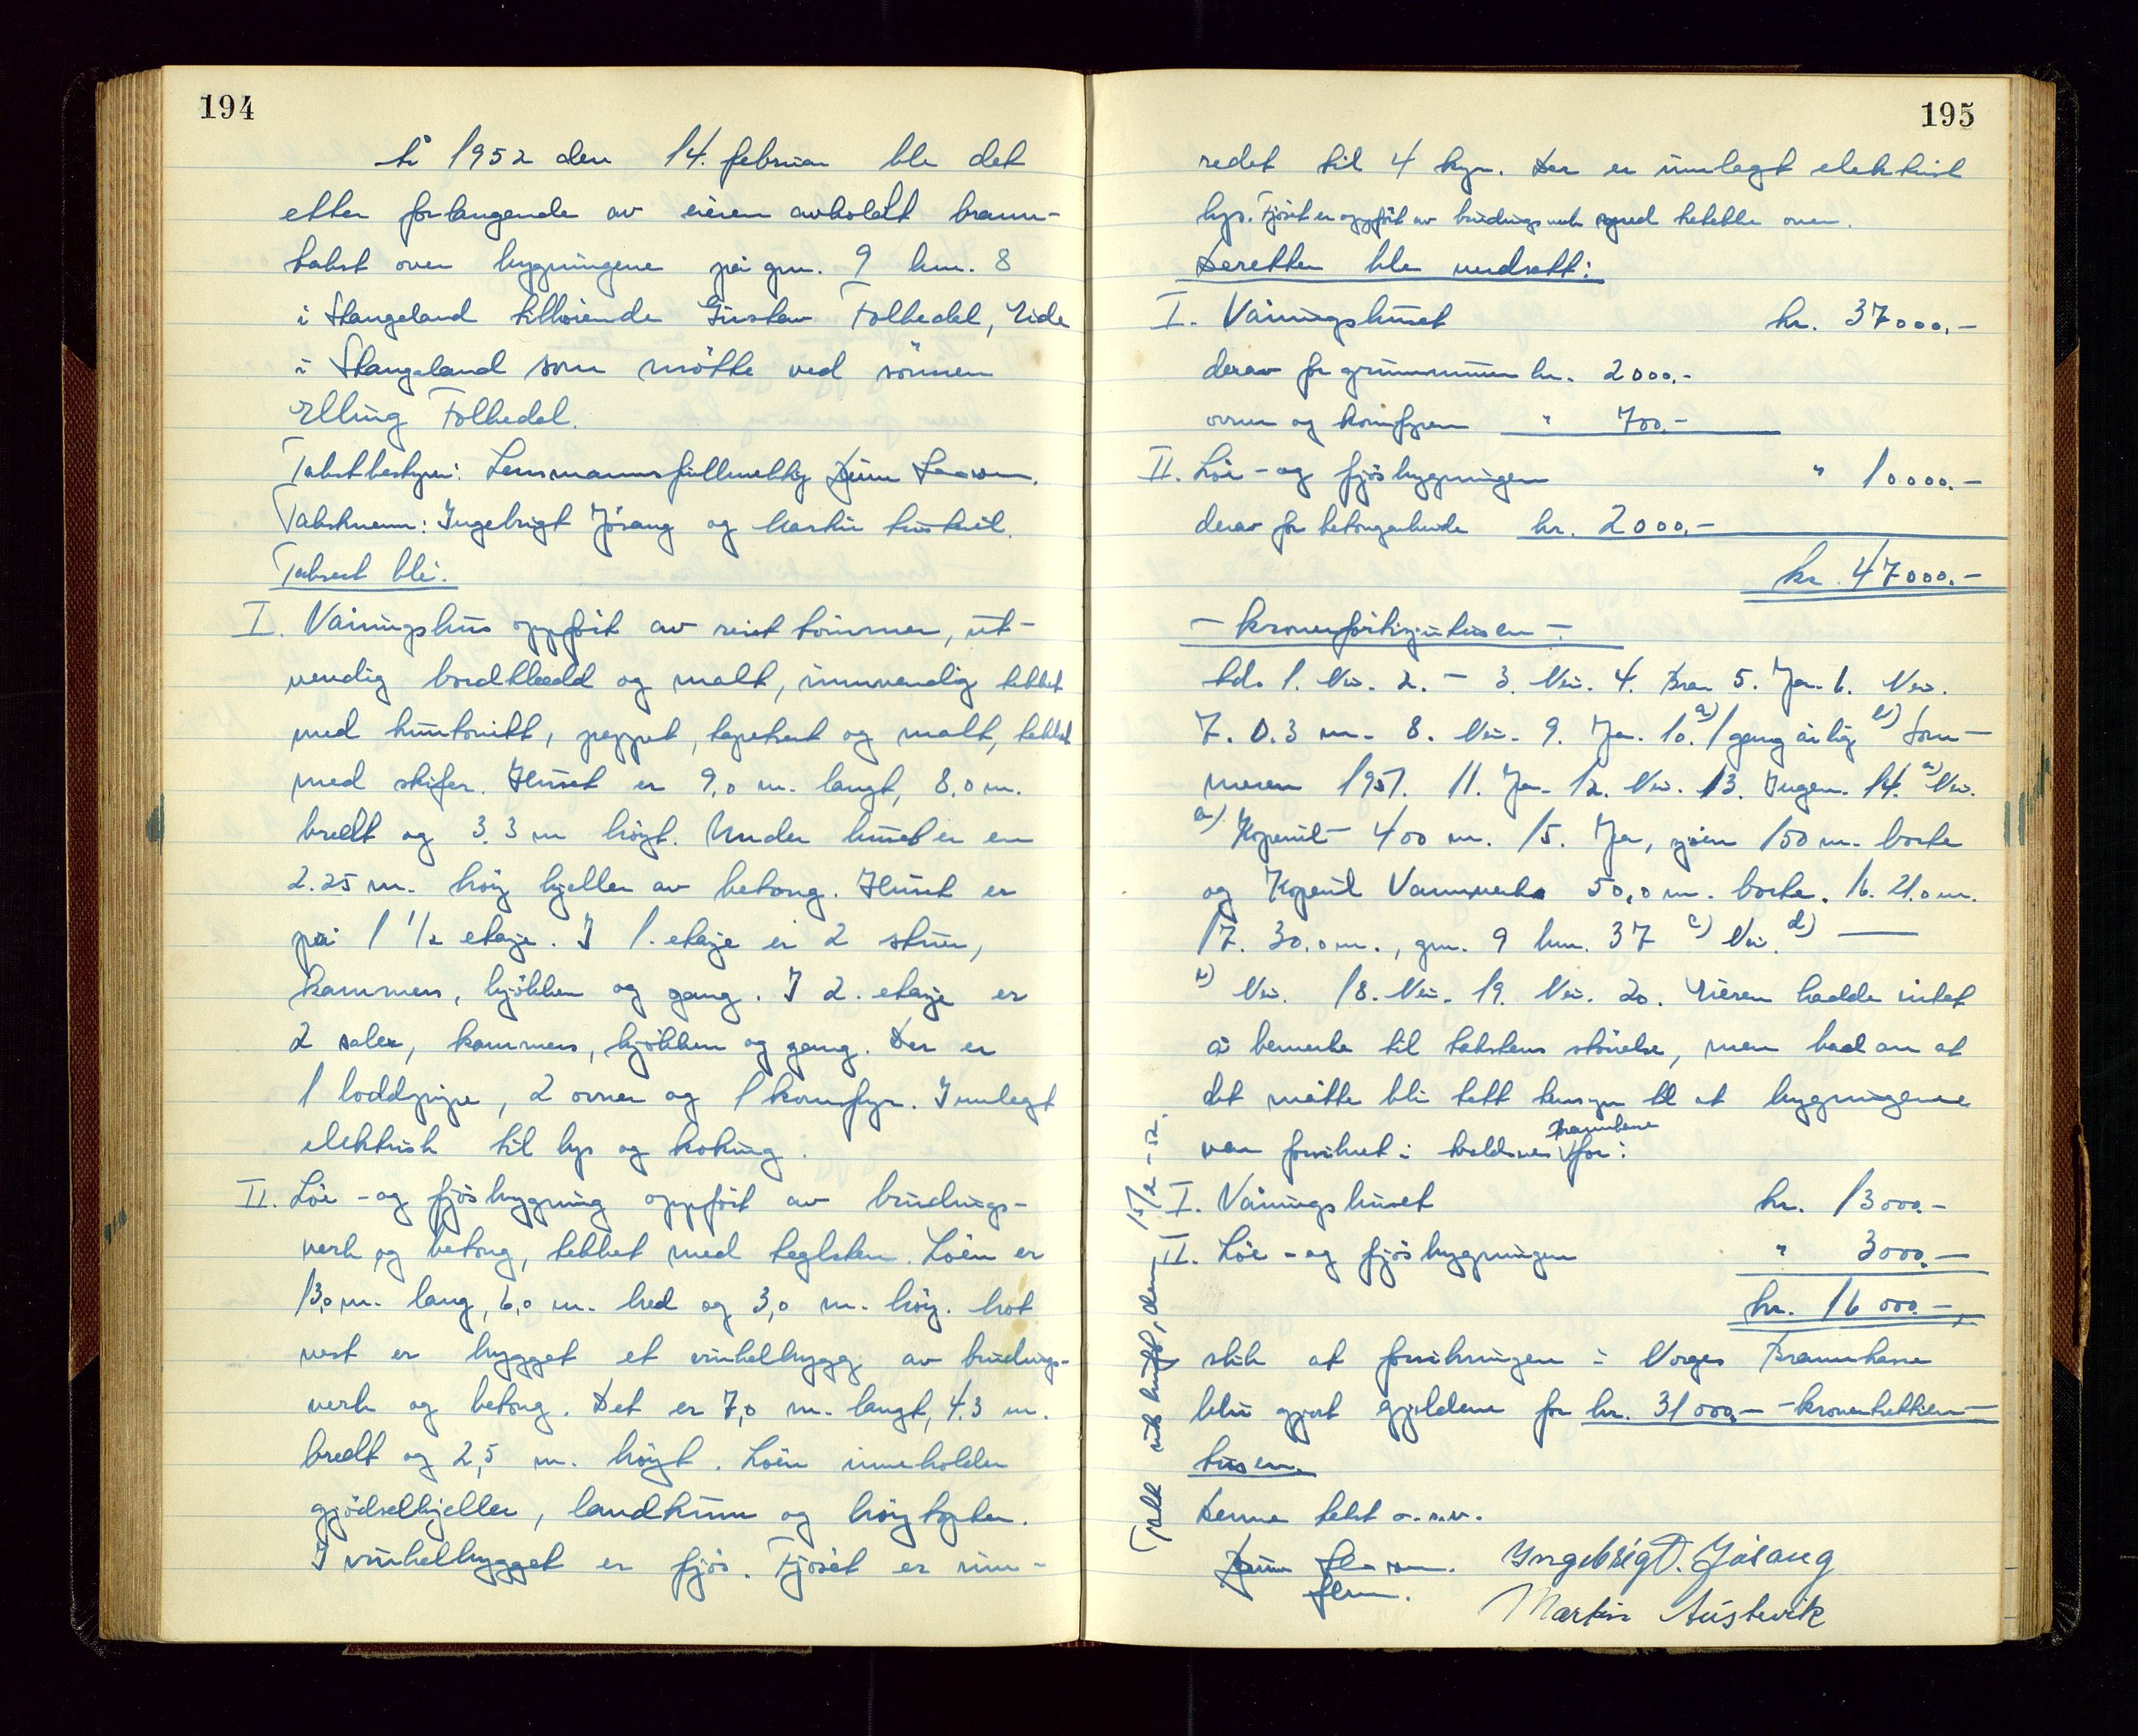 194
År 1952 den 14. februar ble det
etter forlangende av eieren avholdt brann-
takst over bygningene på gnr. 9 bnr. 8
i Stangeland tilhørende Gustav Folkedal, Eide
i Stangeland som møtte ved sønnen
Elling Folkedal.
Takstbestyrer: Lensmannsfullmektig
Takstmenn: Ingebrigt Jösang og Martin Austvik.
Taksert ble:
I. Våningshus oppført av reist tømmer, ut-
vendig bordkledd og malt, innvendig tekket
med huntonitt, pappet, tapetsert og malt, tekket
med skifer. Huset er 9,0 m. langt, 8,0 m.
bredt og 3.3 m høyt. Under huset er en
2.25 m. høy kjeller av betong. Huset er
på 1 1/2 etasje. I 1. etasje er 2 stuer,
kammers, kjøkken og gang. I 2. etasje er
2 saler, kammers, kjøkken og gang. Der er
1 loddpipe, 2 ovner og 1 komfyr. Innlagt
elektrisk til lys og koking.
II. Löe - og fjösbygning oppfört av bindings-
verk og betong, tekket med teglsten. Löen er
13,0 m. lang, 6,0 m. bred og 3,0 m. høy. Mot
vest er bygget et vinkelbygg av bindings-
verk og betong. Det er 7,0 m. langt, 4.3 m.
bredt og 2,5 m. høyt. Löen inneholder
gjödselkjeller, landkum og
I vinkelbygget er fjös. Fjöset er inn-
195
redet til 4 kyr. Der er innlagt elektrisk
lys. Fjöset er oppfört av bindingsverk med over.
Deretter ble verdsatt:
I. Våningshuset kr. 37000.-
derav for grunnmuren kr. 2000.-
ovner og komfyren " 700.-
II. Löe - og fjösbygningen " 10000.-
derav for betongarbeide kr. 2000.-
kr. 47000.-
- kronerførtisjutusen -
Ad. 1. Nei. 2. - 3. Nei. 4. Bra 5. Ja. 6. Nei.
7. 0.3 m. 8. Nei. 9. Ja. 10. a) 1 gang årlig b) Som-
meren 1951. 11. Ja. 12. Nei. 13. Ingen. 14. a) Nei.
a) Kopervik 400 m. 15. Ja, sjøen 150 m. borte
og Kopervik Vannverk 50,0 m. borte. 16. 21.0 m.
17. 30.0 m., gnr. 9 bnr. 37 c) Nei. d) —
e) Nei. 18. Nei. 19. Nei. 20. Eieren hadde intet
å bemerke til takstens størrelse, men bad om at
det måtte bli tatt hensyn til at bygningene
var forsikret i Valdres Brannkasse for:
I. Våningshuset kr. 13000.-
II. Löe - og fjösbygningen " 3000.-
kr. 16000.-,
slik at forsikringen i Norges Brannkasse
blir gjort gjeldene for kr. 31000,- -kronertrettien-
tusen.
Denne takst o.s.v.
Ingebrigt. Jösang
flm.
Martin Austvik
Takk utskrift, den 15/2-52.